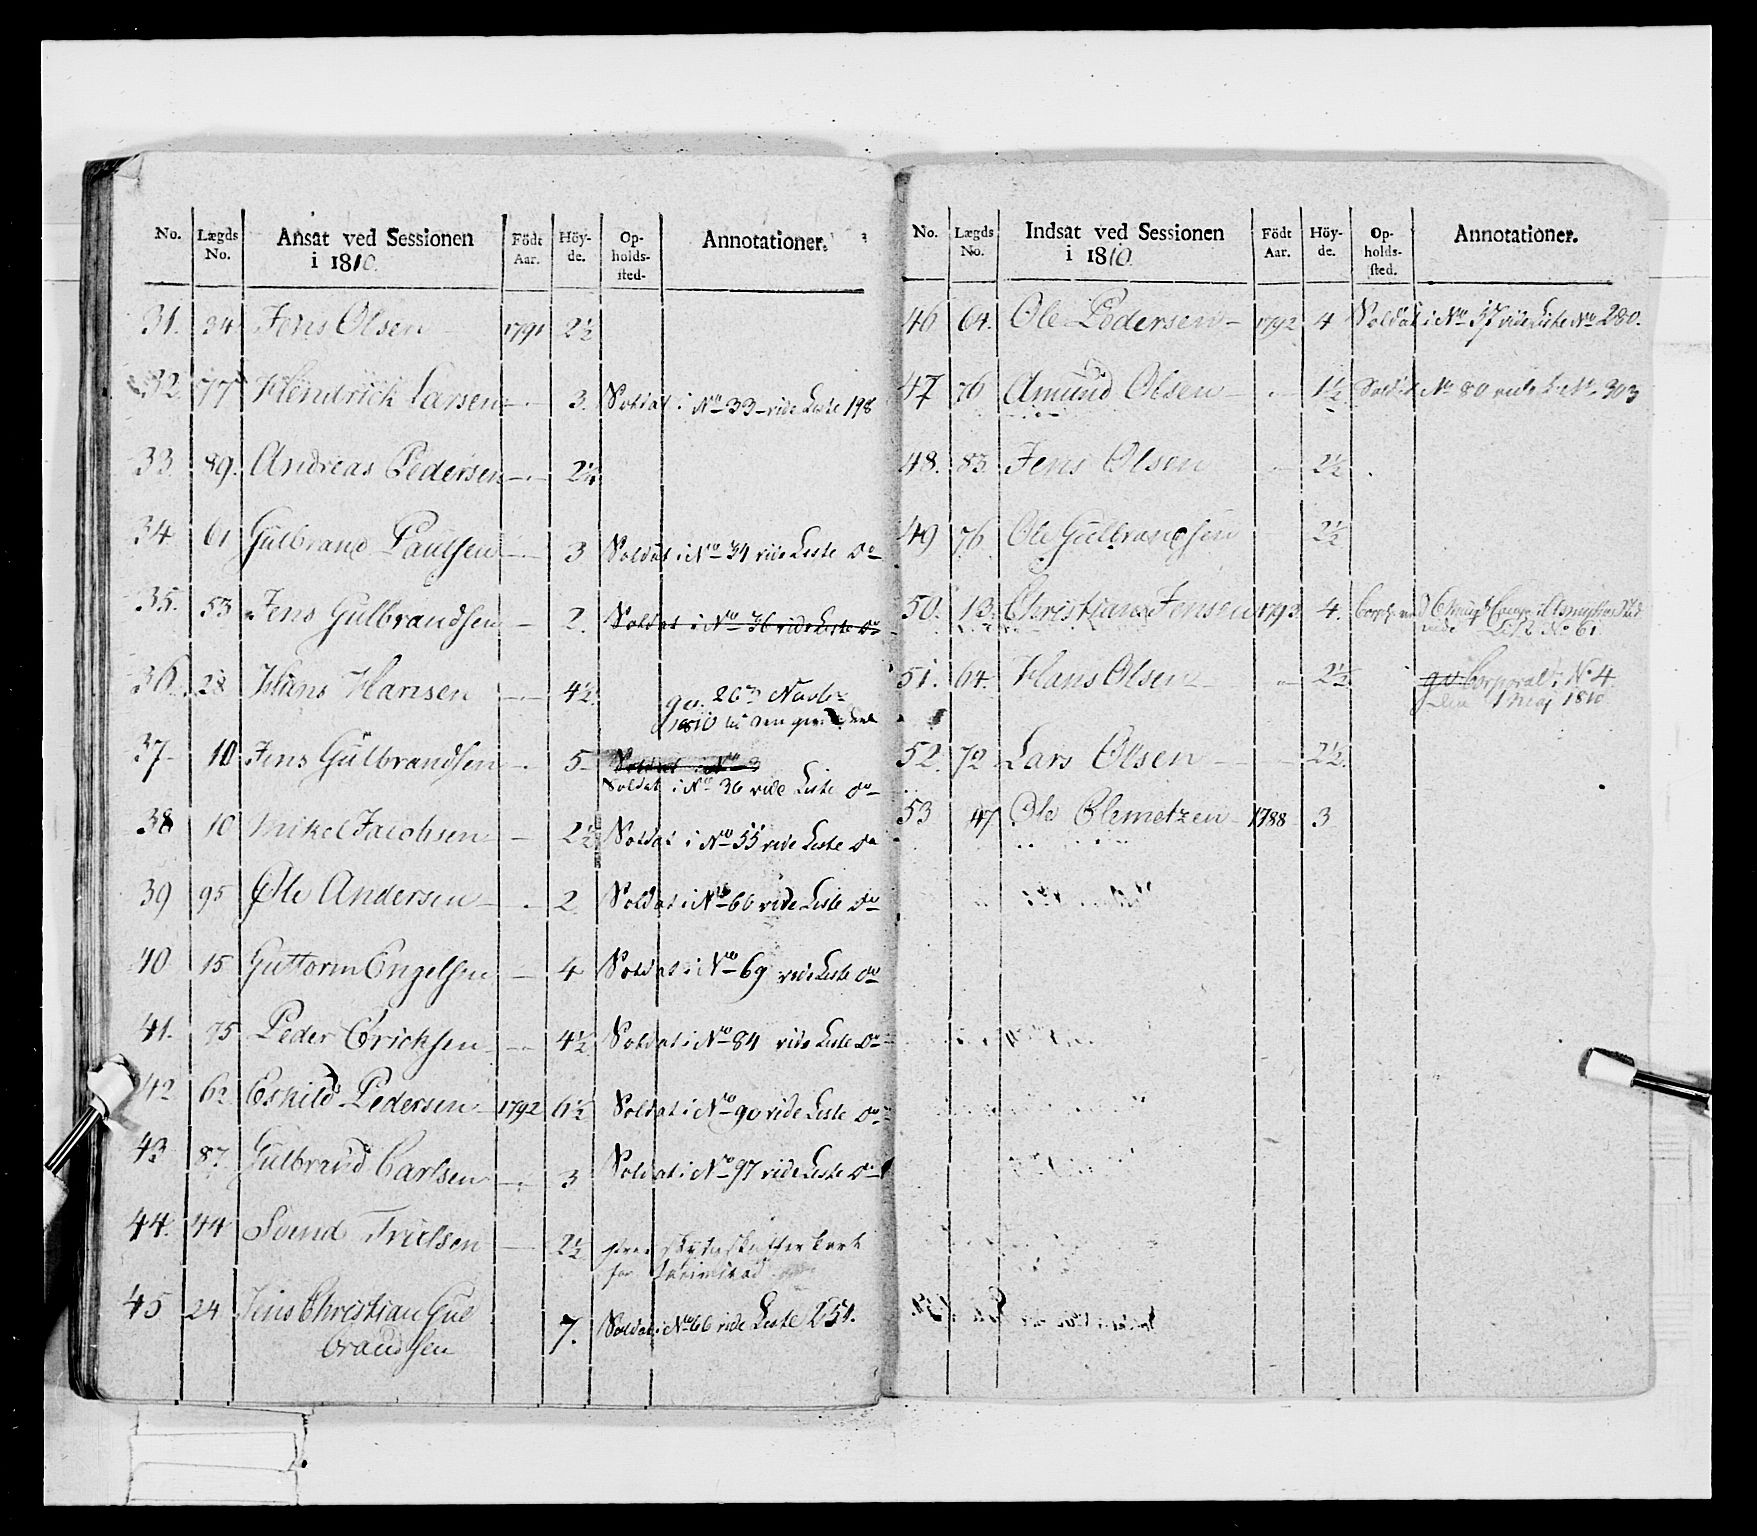 No. Lægds No. Ansat ved Sessionen i 1810. Födt Aar. Höy-de. Op-holds-sted- Annotationer.
31. 34 Jens Olsen 1791 2½
32. 77 Hendrick Larsen — 3. Soldat i No 33 vide Liste 198
33. 89. Andreas Pedersen — 2½
34. 61 Gulbrand Paulsen — 3 Soldat i No 34 vide Liste do
35. 53 Jens Gulbrandsen — 2. Soldat i No 36 vide Liste do
36. 28 Hans Hansen — 4½ 26
1810
37- 10 Jens Gulbrandsen — 5- Soldat i No 3
Soldat i No 36 vide Liste do
38 10 Mikel Jacobsen — 2½ Soldat i No 55 vide Liste do
39 95 Ole Andersen — 2 Soldat i No 60 vide Liste do
40 15 Guttorm Engelsen — 4 Soldat i No 69 vide Liste do
41. 75 Peder Ericksen — 4½ Soldat i No 84 vide Liste do
42 62 Eskild Pedersen 1792 6½ Soldat i No 90 vide Liste do
43 87. Gulbrand Carlsen — 3 Soldat i No 97 vide Liste do
44. 44 Svend Truelsen — 2½
for
45 24 Jens Christian Gul
brandsen 7. Soldat i No 66 vide Liste 251.
No. Lægds No. Indsat ved Sessionen i 1810. Födt Aar. Höy-de. Op-holds-sted. Annotationer.
46 64. Ole Pedersen — 1792 4 Soldat i No 57 vide Liste No 280.
47 76 Amund Olsen — 1½ Soldat No 80 vide L. No 303
48. 83. Jens Olsen — 2½
49 76 Ole Gulbrandsen 2½
50. 13. Christian Jensen 1793 4.
vide Liste No 61
51. 64. Hans Olsen — 2½ Corporal i No 4
den 1 Maj 1810
52. 72 Lars Olsen — 2½.
53 47 Ole Clemetzen 1788 3